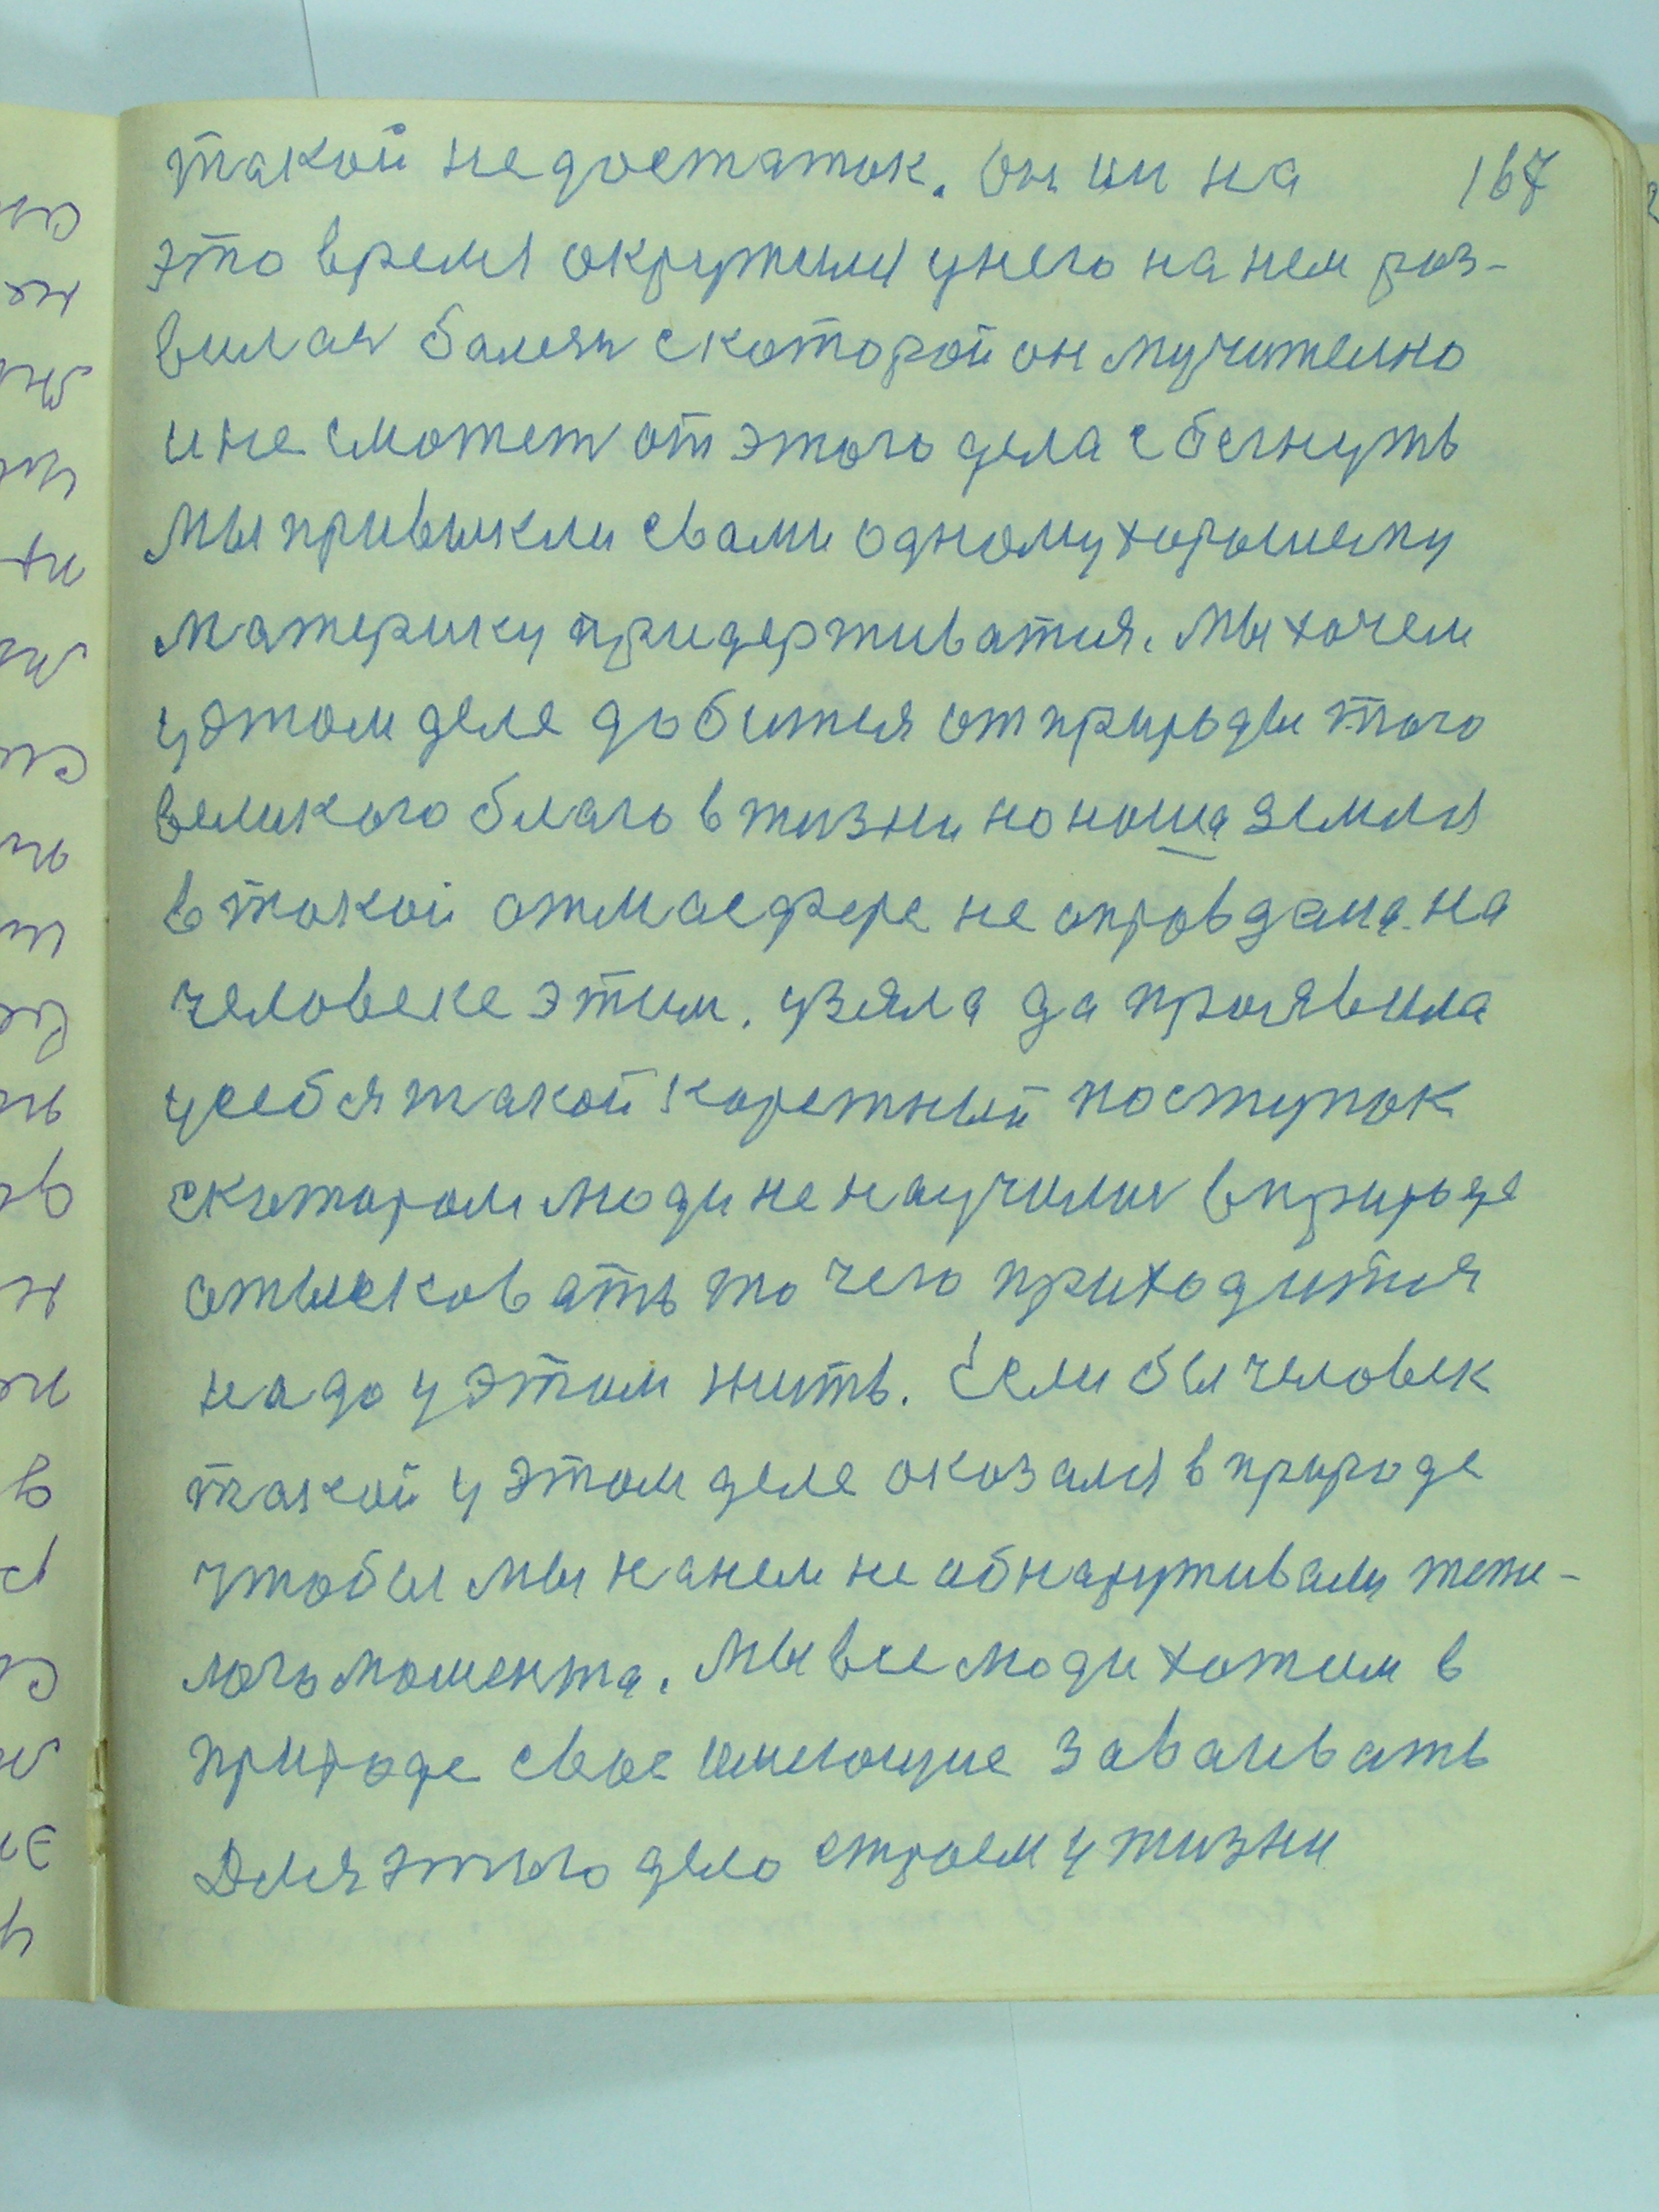 такой недостаток. Он им на 167
это время окружился у него на нем роз-
вилася балезн с которой он мучително
и не сможет от этого дела сбегнуть
Мы привыкли с вами одному хорошему
материку придерживатися. Мы хочем
у этом деле добится от природы того
великого благо в жизни но ноша земля
в токой отмасфере не оправдана на
человеке этим. узяла да проявила
у себя такой коретный поступок
с котором люди не научились в природе
отысковать то чего приходится
надо у этом жить. Если бы человек
такой у этом деле оказался в природе
чтобы мы на нем не обнаруживали тяже-
лого момента. Мы все люди хотим в
природе свое имеющие
Для этого дело строем у жизни